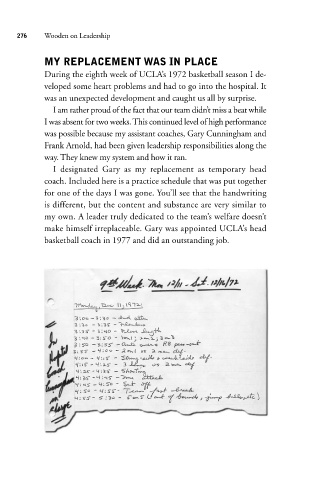 276 Wooden on Leadership
MY REPLACEMENT WAS IN PLACE
During the eighth week of UCLA's 1972 basketball season I de-
veloped some heart problems and had to go into the hospital. It
was an unexpected development and caught us all by surprise.
I am rather proud of the fact that our team didn't miss a beat while
I was absent for two weeks. This continued level of high performance
was possible because my assistant coaches, Gary Cunningham and
Frank Arnold, had been given leadership responsibilities along the
way. They knew my system and how it ran.
I designated Gary as my replacement as temporary head
coach. Included here is a practice schedule that was put together
for one of the days I was gone. You'll see that the handwriting
is different, but the content and substance are very similar to
my own. A leader truly dedicated to the team's welfare doesn't
make himself irreplaceable. Gary was appointed UCLA's head
basketball coach in 1977 and did an outstanding job.
9th Week Mon 12/11 - Sat. 12/16/72
Monday, Dec 11, 1972
3:00 - 3:30 -
3:30 - 3:35 -
3:35 - 3:40 - Floor length
3:40 - 3:50 - 1 on 1; 2 on 2; 3 on 3
3:50 - 3:55 -
3:55 - 4:00 - 2 on 1 vs 2 man def.
4:00 - 4:15 - Strong side & weak side def.
4:15 - 4:25 - 3 vs 2 def
4:25 - 4:35 - Shooting
4:35 - 4:45 - Zone attack
4:45 - 4:50 - Set off
4:50 - 4:55 - Team fast break
4:55 - 5:30 - 5 on 5 (out of bounds, jump
in
charge